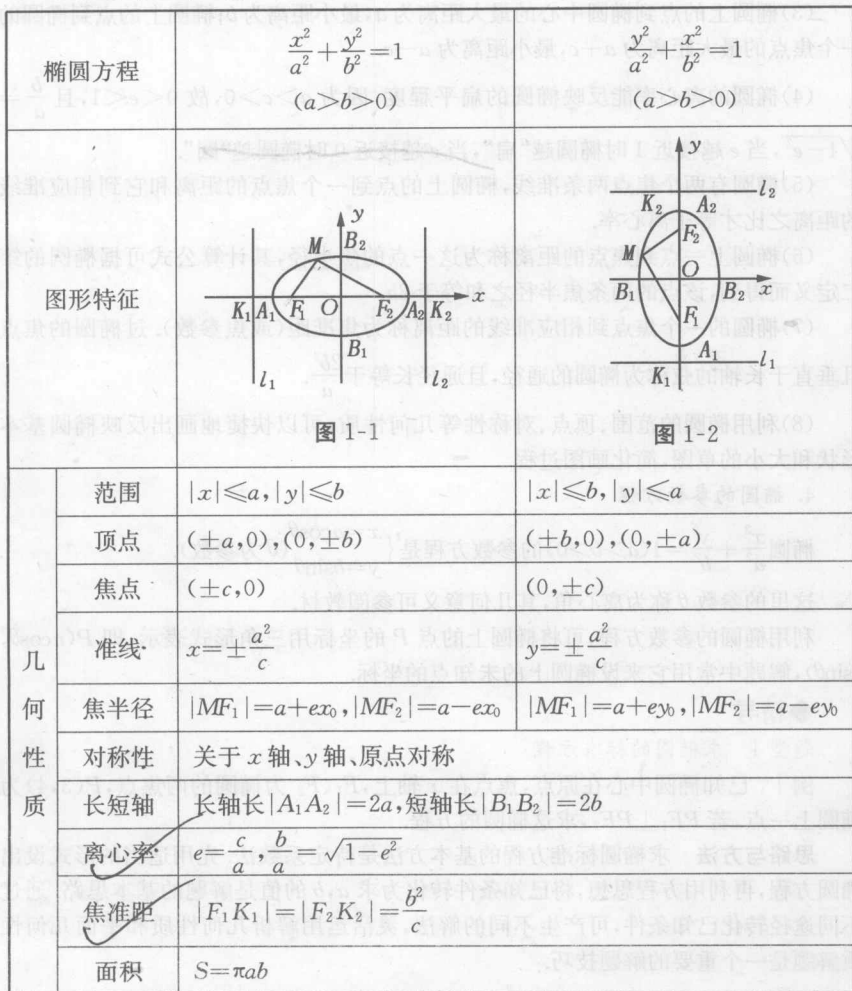 椭圆方程
x²/a²+y²/b²=1
(a>b>0)
y²/a²+x²/b²=1
(a>b>0)
图形特征
y
M B₂
K₁ A₁ F₁ O F₂ A₂ K₂ x
B₁
l₁ l₂
图1-1
y
K₂ A₂ l₂
F₂
M
O
B₁ B₂ x
F₁
A₁
K₁ l₁
图1-2
几何性质
范围 |x|≤a,|y|≤b |x|≤b,|y|≤a
顶点 (±a,0),(0,±b) (±b,0),(0,±a)
焦点 (±c,0) (0,±c)
准线 x=±a²/c y=±a²/c
焦半径 |MF₁|=a+ex₀,|MF₂|=a-ex₀ |MF₁|=a+ey₀,|MF₂|=a-ey₀
对称性 关于x轴、y轴、原点对称
长短轴 长轴长|A₁A₂|=2a,短轴长|B₁B₂|=2b
离心率 e=c/a,b/a=√(1-e²)
焦准距 |F₁K₁|=|F₂K₂|=b²/c
面积 S=πab